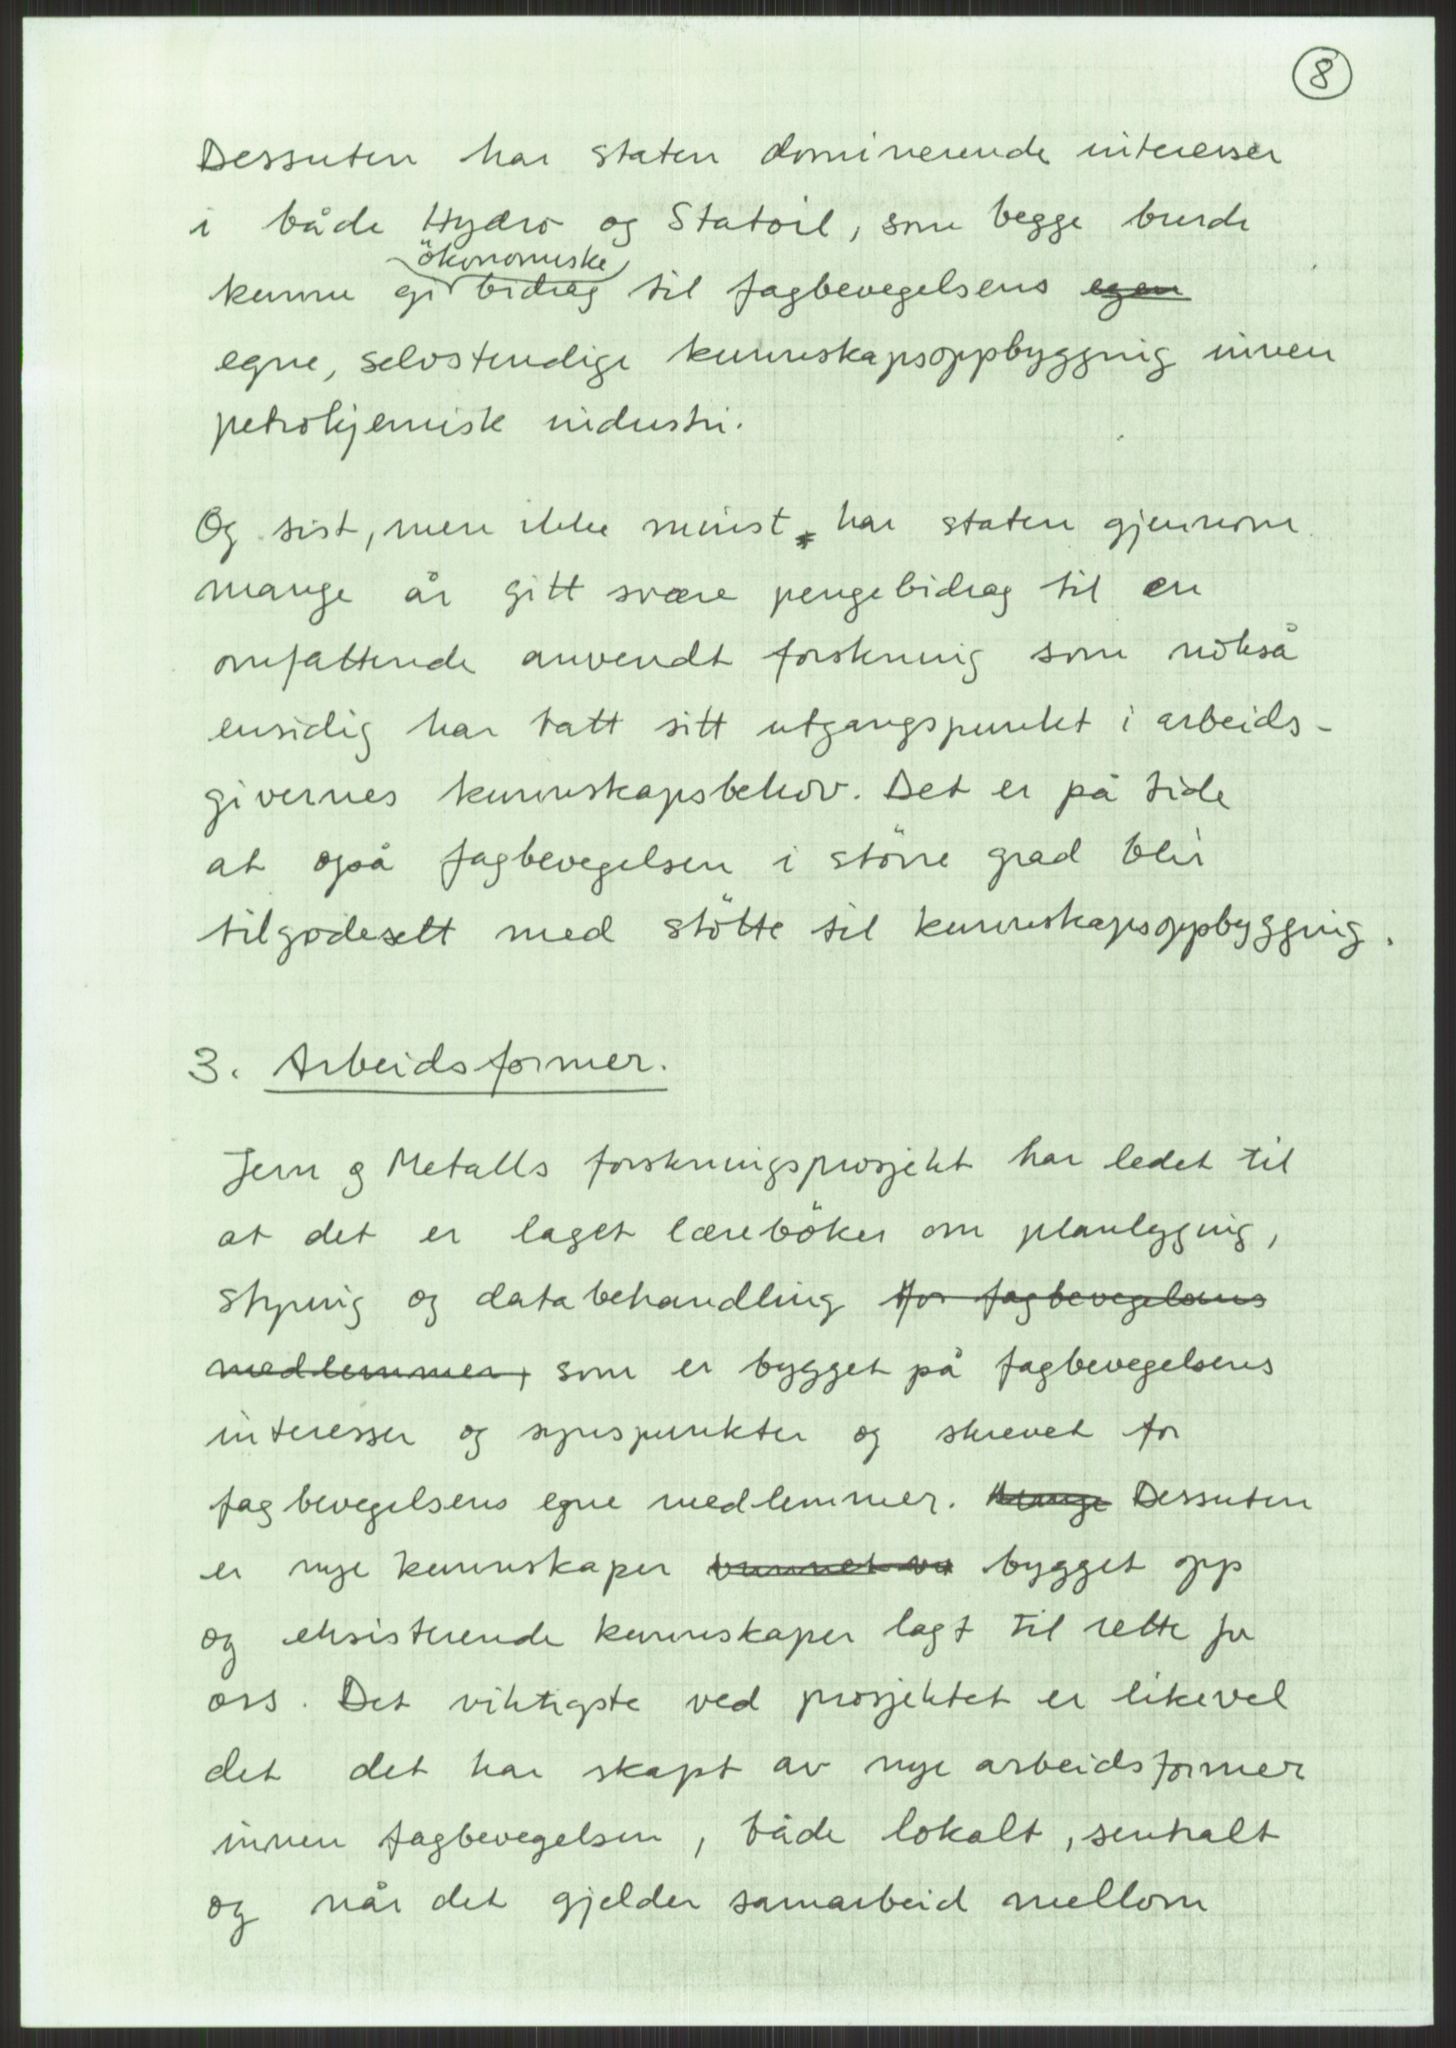 8
Dessuten har staten dominerende interesser
i både Hydro og Statoil, som begge burde
økonomiske
kunne gi bidrag til fagbevegelsens egen
egne, selvstendige kunnskapsoppbygging innen
petrokjemisk industri.
Og sist, men ikke minst, har staten gjennom
mange år gitt svære pengebidrag til en
omfattende anvendt forskning som nökså
ensidig har tatt sitt utgangspunkt i arbeids-
givernes kunnskapsbehov. Det er på tide
at også fagbevegelsen i större grad blir
tilgodesett med stötte til kunnskapsoppbygging.
3. Arbeidsformer.
Jern og Metalls forskningsprosjekt har ledet til
at det er laget læreböker om planlegging,
styring og databehandling for fagbevegelsens
medlemmer, som er bygget på fagbevegelsens
interesser og synspunkter og skrevet for
fagbevegelsens egne medlemmer. Mange Dessuten
er nye kunnskaper vunnet ve bygget opp
og eksisterende kunnskaper lagt til rette for
oss. Det viktigste ved prosjektet er likevel
det det har skapt av nye arbeidsformer
innen fagbevegelsen, både lokalt, sentralt
og når det gjelder samarbeid mellom